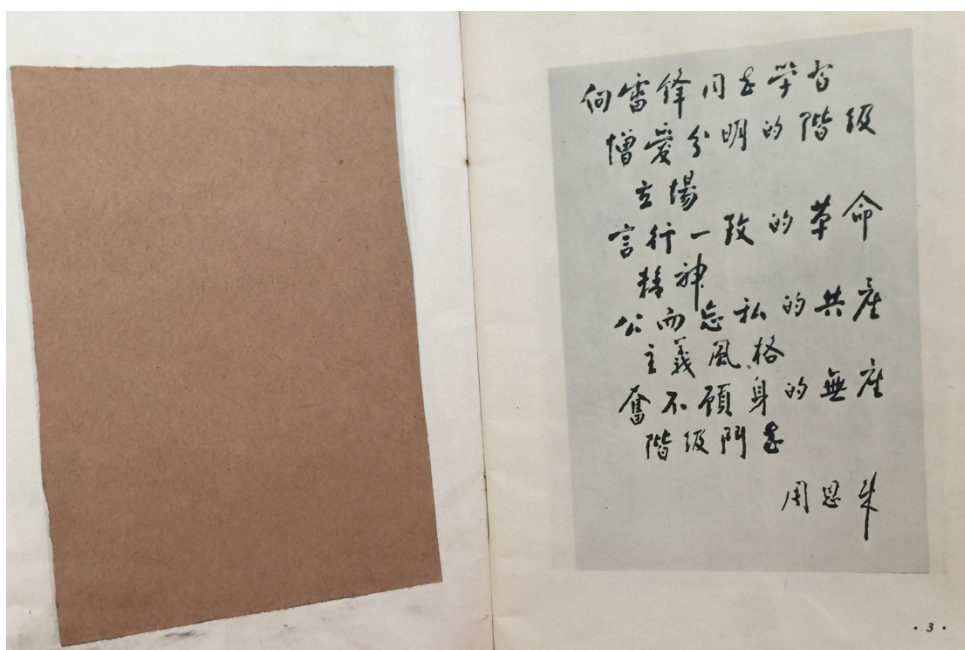 向雷锋同志学習
憎爱分明的階级
立場
言行一致的革命
精神
公而忘私的共産
主義風格
奮不顾身的無産
階级鬥志
周恩来
·3·